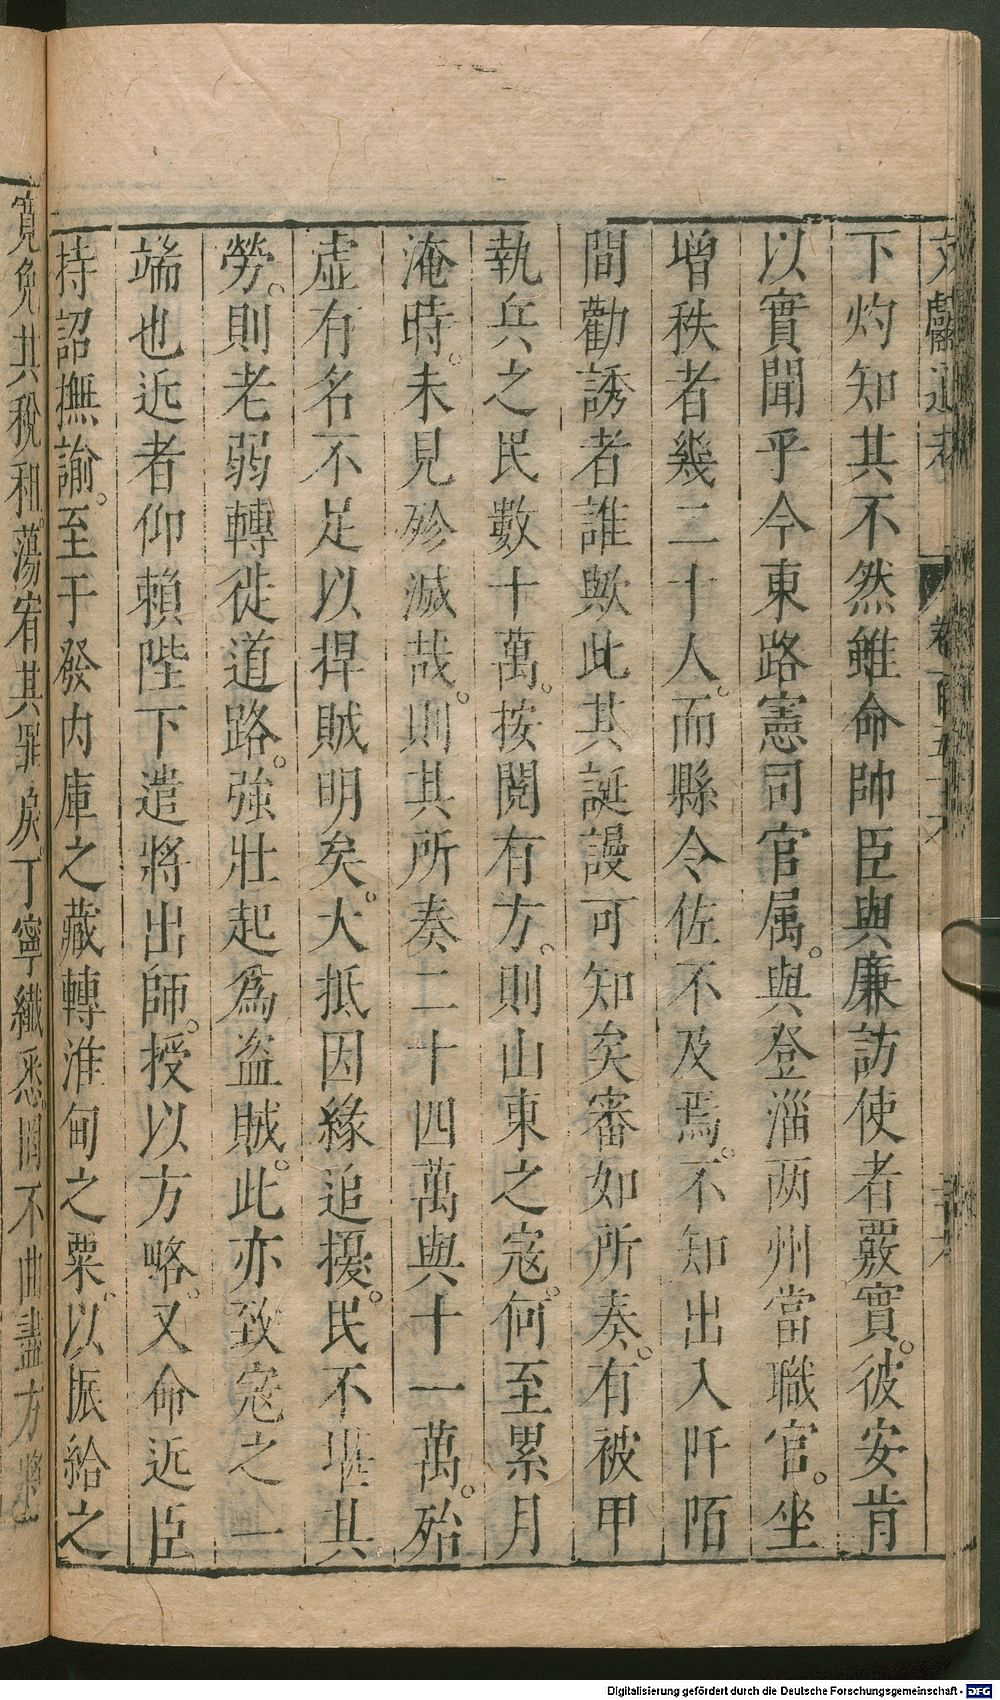 文獻通考 卷一百五十六
下灼知其不然雖命帥臣與廉訪使者覈實。彼安肯
以實聞乎今東路憲司官属。與登淄两州當職官。坐
增秩者幾二十人。而縣令佐不及焉。不知出入阡陌
間勸誘者誰歟此其誕謾可知矣審如所奏。有被甲
執兵之民數十萬。按閱有方。則山東之寇。何至累月
淹時。未見殄滅哉。則其所奏二十四萬與十一萬。殆
虛有名不足以捍賊明矣。大抵因緣追擾。民不堪其
勞。則老弱轉徙道路。強壯起爲盜賊。此亦致寇之一
端也近者仰賴陛下遣將出師。授以方略。又命近臣
持詔撫諭。至于發内庫之藏轉淮甸之粟。以振給之
寬免其稅和。蕩宥其罪戾。丁寧纖悉。罔不曲盡方將
Digitalisierung gefördert durch die Deutsche Forschungsgemeinschaft - DFG